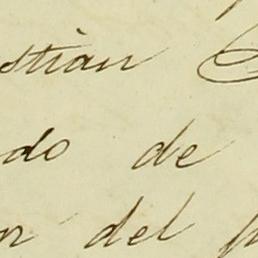 stian
do de
or del